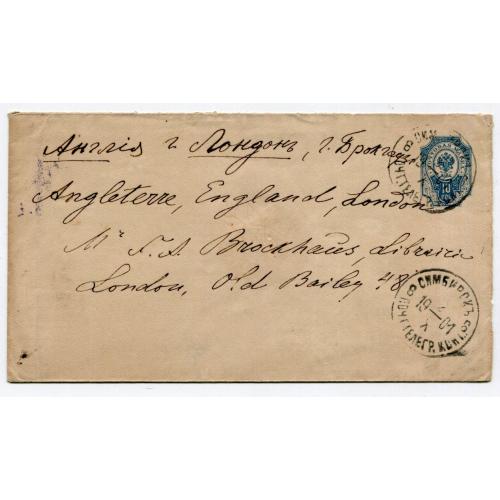 Англія г. Лондонъ, г. Брокгаузъ
Angleterre, England, London
Mr F. A. Brockhaus, Librairie
London, Old Bailey 48
СИМБИРСКЪ
19 01
ПОЧТ. ТЕЛЕГР. КОНТ.